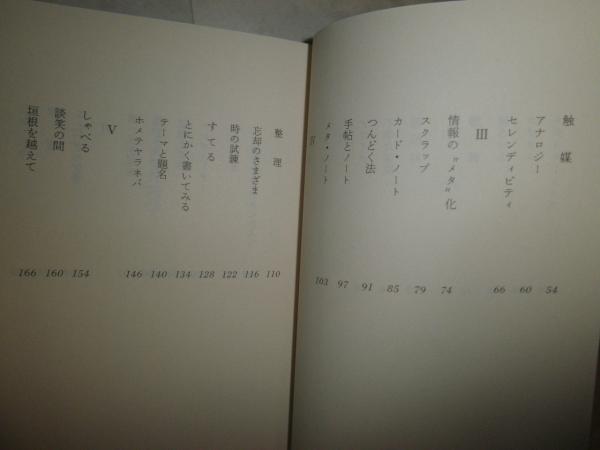 触媒 54
アナロジー 60
セレンディピティ 66
III
情報の"メタ"化 74
スクラップ 79
カード・ノート 85
つんどく法 91
手帖とノート 97
メタ・ノート 103
IV
整理 110
忘却のさまざま 116
時の試錬 122
すてる 128
とにかく書いてみる 134
テーマと題名 140
ホメテヤラネバ 146
V
しゃべる 154
談笑の間 160
垣根を越えて 166